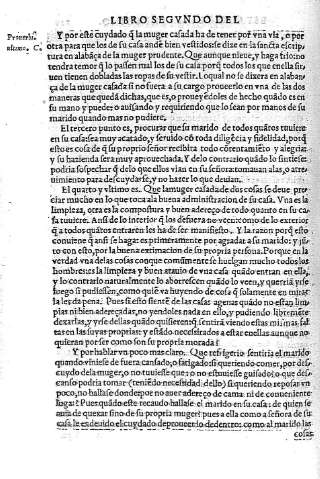 LIBRO SEGVNDO DEL
Prouerb. vltimo. C.
Y por estẽ cuydado q̃ la muger casada ha de tener por vna via, o por
otra para que los de su casa andẽ bien vestidos se dize en la sancta escrip
tura en alabãça de la muger prudente. Que aunque nieue, y haga frio: no
tendra temor q̃ lo passen mal los de su casa porq̃ todos los que enella sir
uen tienen dobladas las ropas de su vestir. Lo qual no se dixera en alabã
ça de la muger casada si no fuera a su cargo proueerlo en vna de las dos
maneras que quedã dichas, que es, o proueyẽdoles de hecho quãdo es en
su mano y puede: o auisando y requiriendo que lo sean por manos de su
marido quando mas no pudiere.
El tercero punto es, procurar que su marido de todos quãtos tuuiere
en su casa sea muy acatado, y seruido cõ toda diligẽcia y fidelidad, porq̃
esto es cosa de q̃ su proprio señor recibira todo cõtentamiẽto y alegria:
y su hazienda sera muy aprouechada. Y de lo contrario quãdo lo sintiese:
podria sospechar q̃ delo que ellos viã en su señora tomauan alas, o atre
uimiento para descuydarse, y no hazer lo que deuian.
El quarto y vltimo es. Que la muger casada de dos cosas se deue pre
ciar mucho en lo que toca ala buena administracion de su casa. Vna es la
limpieza, otra es la compostura y buen adereço de todo quanto en su ca
sa tuuiere. Ansi de lo interior q̃ los defuera no veen: como de lo exterior
q̃ a todos quãtos entrarẽ les ha de ser manifiesto. Y la razon porq̃ esto
conuiene q̃ ansi se haga: es primeramente por agradar a su marido: y jũ
to con esto, por la buena estimacion de su propria persona. Porque en la
verdad vna delas cosas conque comũmente se huelgan mucho todos los
hombres: es la limpieza y buen atauio de vna casa quãdo entran en ella,
y lo contrario naturalmente lo aborrescẽ quãdo lo veen, y querriã yrse
luego si pudiessen, como quiẽ va huyendo de cosa q̃ solamente en mirar
la les da pena. Pues si esto siẽtẽ de las casas agenas quãdo no estan lim
pias ni bien adereçadas, no yendoles nada en ello, y pudiendo libremẽte
dexarlas, y yrse dellas quãdo quisierẽ: mas q̃ sentirã viendo estas mismas fal
tas en las suyas proprias: y estãdo necessitados a estar enellas aunque no
quieran por ser como son su propria morada?
Y por hablar vn poco mas claro. Que refrigerio sentiria el marido
quando viniese de fuera cansado, o fatigado: si queriendo comer, por des
cuydo dela muger, o no tuuiesse que: o no estuuiesse guisado: o que des-
canso podria tomar (teniẽdo necessidad dello) si queriendo reposar vn
poco, no hallase donde: por no auer adereço de cama: ni de conueniente
lugar? Pues quãdo este recaudo hallase el marido en su casa: de quien se
auia de quexar sino de su propria muger? pues a ella como a señora de su
casa le es deuido el cuydado de proueerlo de dentro: como al marido las
cosas